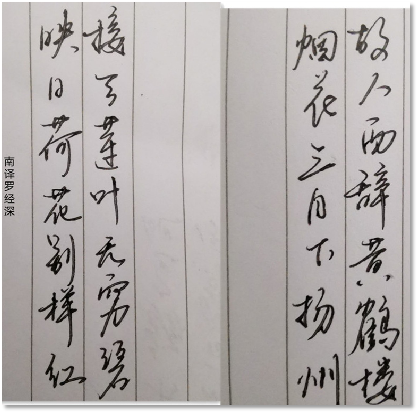 故人西辞黄鹤楼
烟花三月下扬州
接天莲叶无穷碧
映日荷花别样红
南译罗经深